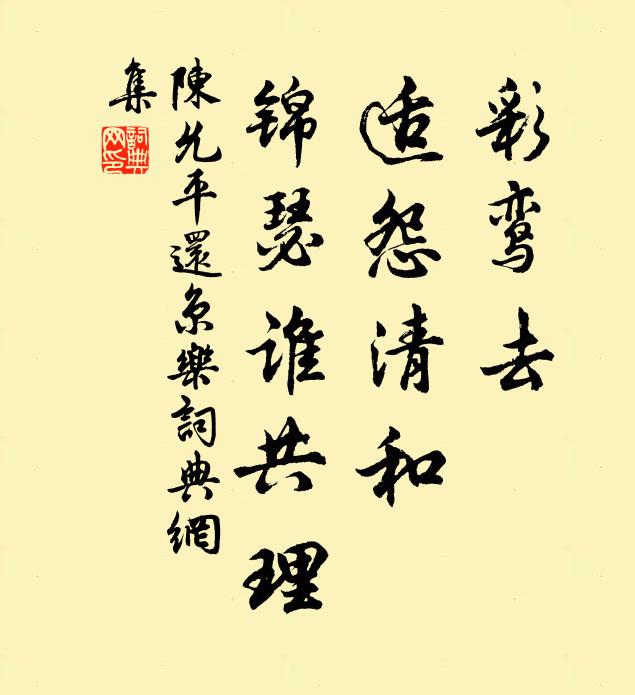 彩鸾去
适怨清和
锦瑟谁共理
陳允平還京樂詞典網
集
詞典網印